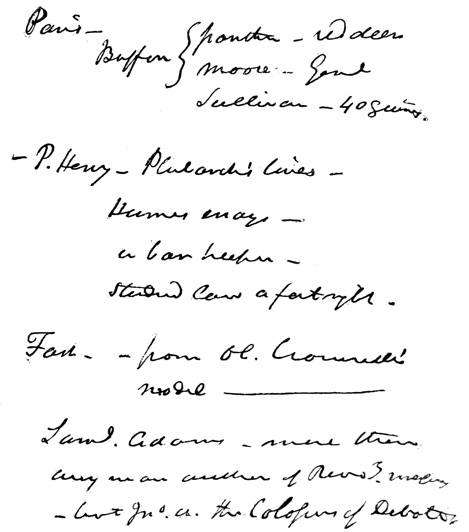 Paris –
Buffon { panther – red deer
moose – Genl
Sullivan – 40 guineas.
– P. Henry – Plutarch's lives –
Humes essays –
a bar keeper –
studied Law a fortnight.
Fast – – from Ol. Cromwell's
model ———
Saml. Adams – more than
any man author of Revo. measures
– but Jno. A. the Colossus of Debate